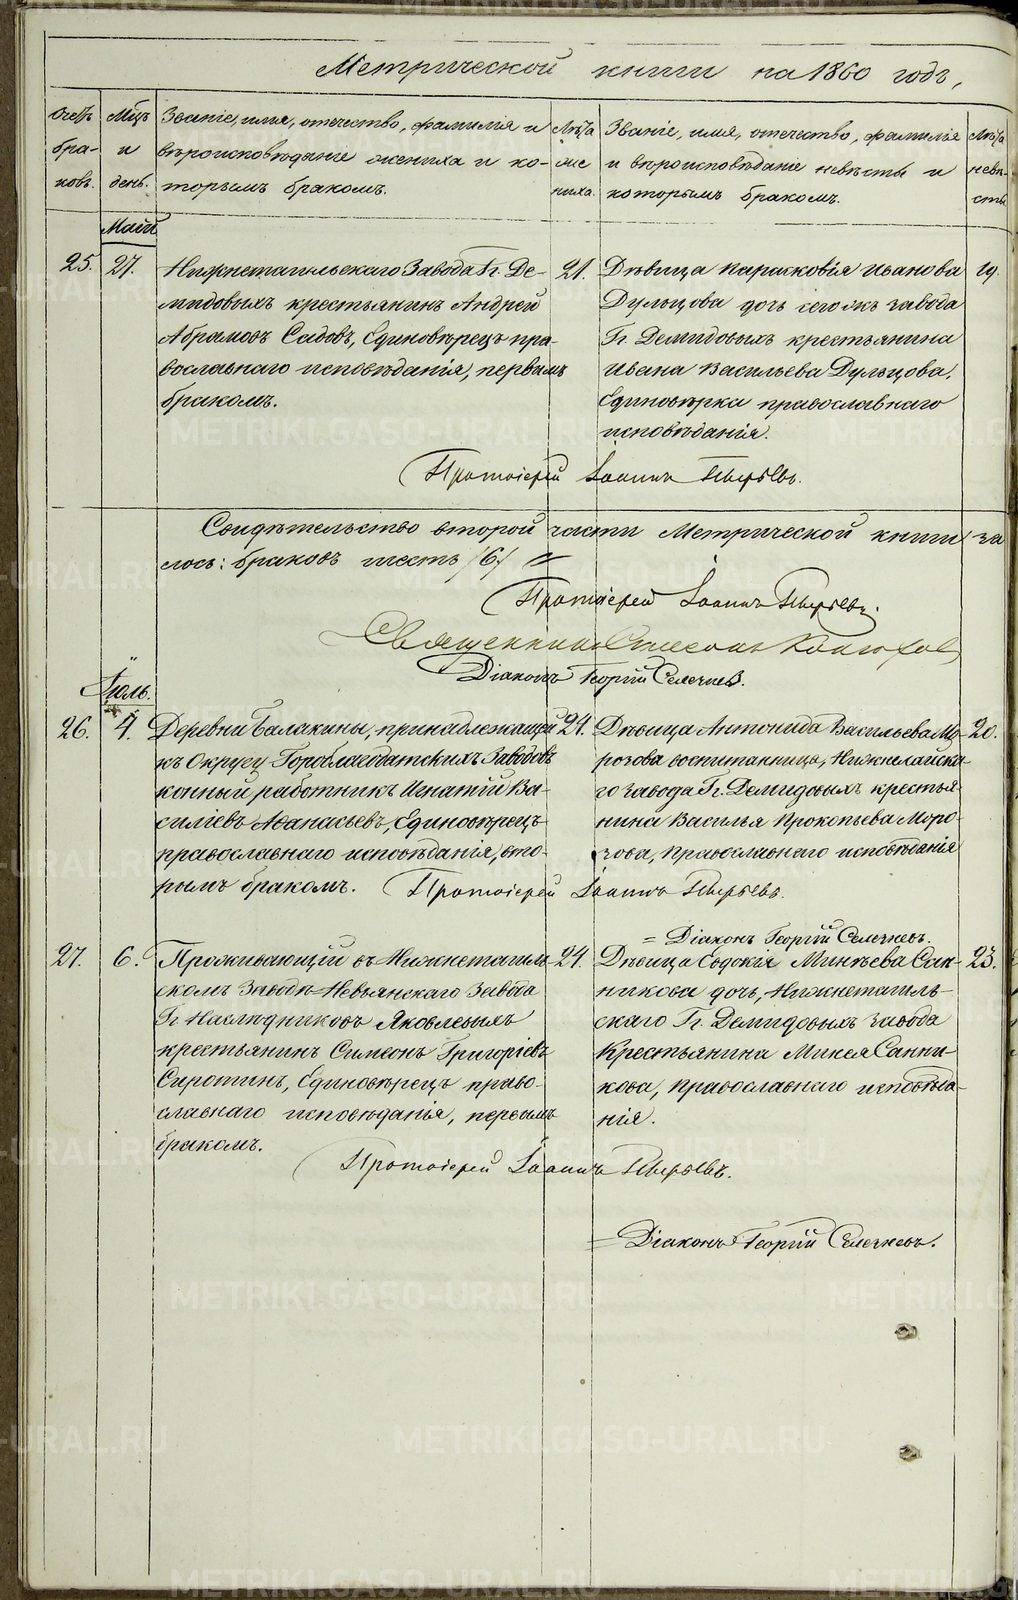 Метрической книги на 1860 годъ,
Счетъ браковъ.
Мѣцъ и день.
Званіе, имя, отчество, фамилія и
вѣроисповѣданіе жениха и ко-
торымъ бракомъ.
Лѣта жениха.
Званіе, имя, отчество, фамилія
и вѣроисповѣданіе невѣсты и
которымъ бракомъ.
Лѣта невѣсты
Май
25. 27.
Нижнетагильскаго Завода Гг. Де-
мидовыхъ крестьянинъ Андрей
Абрамовъ Садовъ, Единовѣрецъ пра-
вославнаго исповѣданія, первымъ
бракомъ.
21.
Дѣвица Парасковія Иванова
Дульцова дочь сегожъ завода
Гг. Демидовыхъ крестьянина
Ивана Васильева Дульцова.
Единовѣрка православнаго
исповѣданія.
19.
Протоіерей Іоаннъ
Свидѣтельство второй части Метрической книги за
лось: браковъ шесть /6/
Протоіерей Іоаннъ
Священникъ
Діаконъ Георгій Селечневъ.
Іюль.
26. 4.
Деревни Балакины, принадлежащей
къ Округу Гороблагодатскихъ Заводовъ
конный работникъ Игнатій Ва-
силіевъ Аѳанасьевъ, Единовѣрецъ
православнаго исповѣданія, вто-
рымъ бракомъ.
24.
Дѣвица Антонида Васильева Мо-
розова воспитанница, Нижнелайска-
го завода Гг. Демидовыхъ крестья-
нина Василья Прокопьева Моро-
зова, Православнаго исповѣданія
20.
Протоіерей Іоаннъ
= Діаконъ Георгій Селечневъ.
27. 6.
Проживающій въ Нижнетагиль-
скомъ Заводѣ Невьянскаго Завода
Гг Наслѣдниковъ Яковлевыхъ
крестьянинъ Симеонъ Григоріевъ
Сиротинъ, Единовѣрецъ право-
славнаго исповѣданія, первымъ
бракомъ.
24.
Дѣвица Евдокія Минѣева Сан-
никова дочь, Нижнетагиль-
скаго Гг. Демидовыхъ завода
Крестьянина Минея Санни-
кова, Православнаго исповѣда-
нія.
23.
Протоіерей Іоаннъ
= Діаконъ Георгій Селечневъ.
METRIKI.GASO-URAL.RU